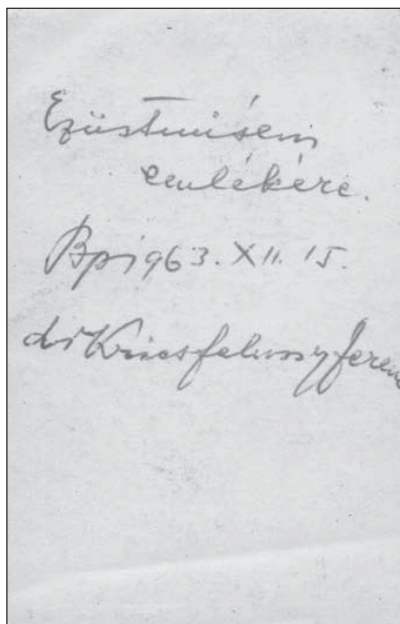 Ezüstmisém
emlékére.
Bp. 1963. XII. 15.
dr Kriesfalussy Ferenc